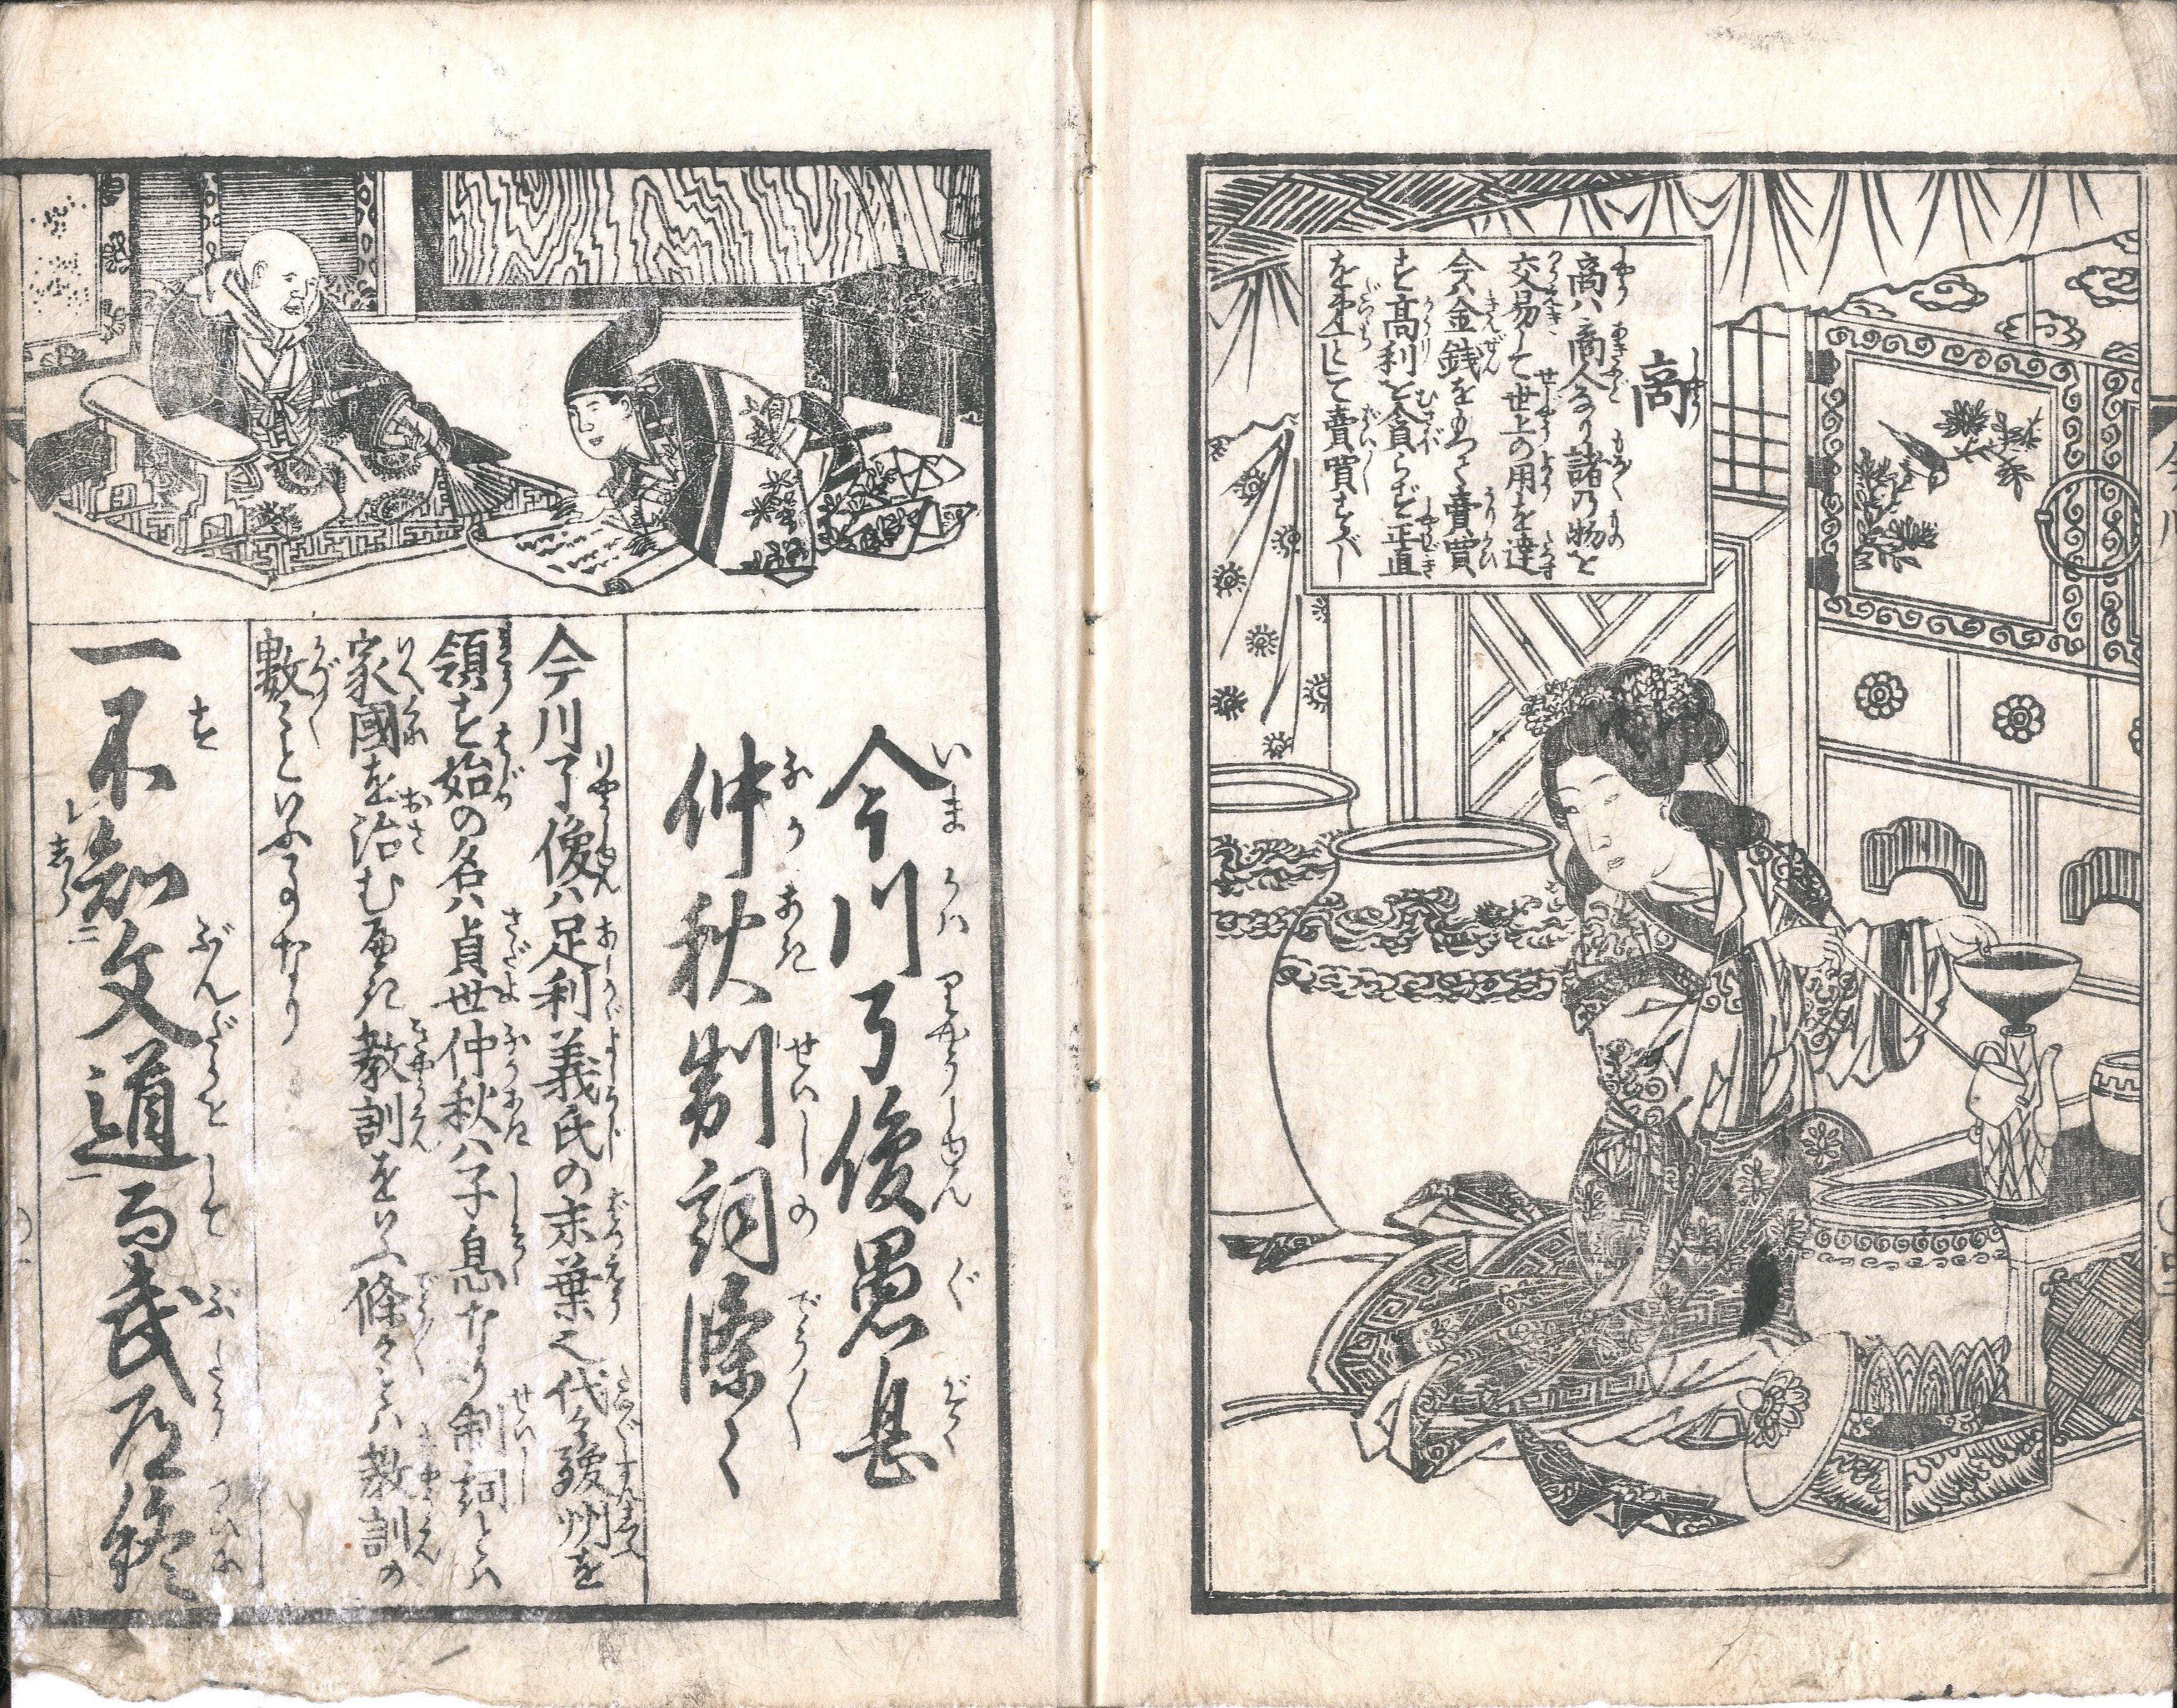 商
商ハ商人なり諸乃物を
交易して世上の用を達
今ハ金銭をもつて賣買
す高利を貪らず正直
を第一にして賣買すべし
今川了俊愚息
仲秋制詞條々
今川了俊ハ足利義氏の末葉也代々駿州を
領す始の名ハ貞世仲秋ハ子息なり制詞とハ
家國を治むべき教訓をいふ條々とハ教訓の
數々といふ事なり
一不知文道而武道終